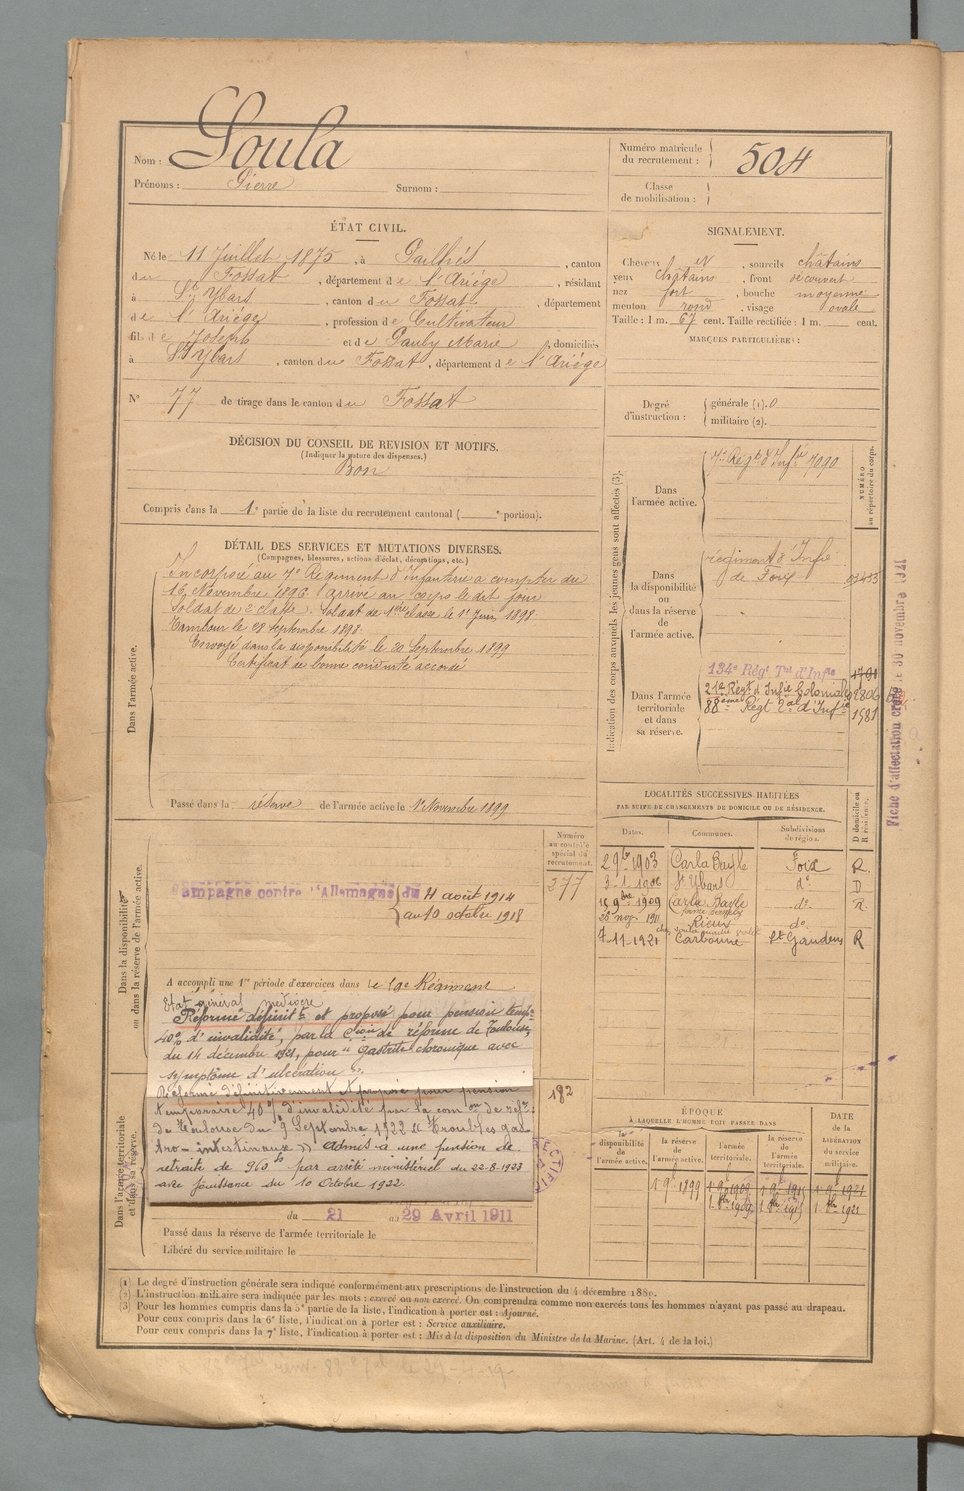 Nom : Soula
Prénoms : Pierre Surnom :
Numéro matricule du recrutement : 504
Classe de mobilisation :
ÉTAT CIVIL.
Né le 11 Juillet 1875, à Pailhés, canton
du Fossat, département de l'Ariége, résidant
à St Ybars, canton du Fossat, département
de l'Ariége, profession de Cultivateur
fils de Joseph et de Pauly Marie, domiciliés
à St Ybars, canton du Fossat, département de l'Ariége
N° 77 de tirage dans le canton du Fossat
SIGNALEMENT.
Cheveux et, sourcils châtains
yeux châtains, front découvert
nez fort, bouche moyenne
menton rond, visage ovale
Taille : 1 m. 67 cent. Taille rectifiée : 1 m. cent.
MARQUES PARTICULIÈRES :
Degré d'instruction : générale (1). 0
militaire (2).
DÉCISION DU CONSEIL DE REVISION ET MOTIFS.
(Indiquer la nature des dispenses.)
Bon
Compris dans la 1e partie de la liste du recrutement cantonal ( e portion).
DÉTAIL DES SERVICES ET MUTATIONS DIVERSES.
(Campagnes, blessures, actions d'éclat, décorations, etc.)
Dans l'armée active.
Incorporé au 7e Régiment d'Infanterie a compter du
16 Novembre 1896 arrivé au corps le dit jour
Soldat de 2e classe. Soldat de 1ère classe le 1er Juin 1898
Tambour le 28 septembre 1898.
Envoyé dans la disponibilité le 20 Septembre 1899
Certificat de bonne conduite accordé
Passé dans la réserve de l'armée active le 1er Novembre 1899
Indication des corps auxquels les jeunes gens sont affectés (3).
NUMÉRO au répertoire du corps.
Dans l'armée active.
7e Régt d'Infie 7090
Dans la disponibilité ou dans la réserve de l'armée active.
régiment d'Infie
de Foix 03433
Dans l'armée territoriale et dans sa réserve.
134e Régt Tal d'Infie
21e Régt d'Infie Coloniale 02806
88ème Régt Tal d'Infie 1581
Fiche d'affectation créée le 30 novembre
LOCALITÉS SUCCESSIVES HABITÉES
PAR SUITE DE CHANGEMENTS DE DOMICILE OU DE RÉSIDENCE.
Dates. Communes. Subdivisions de région. D domicile ou R résidence.
2 9bre 1903 Carla Bayle Foix R.
3-1-1906 St Ybars do D
15 9bre 1909 Carla Bayle do R.
20 nov. 1911 Rieux do
7-11-1921 Carbonne St Gaudens R
Dans la disponibilité ou dans la réserve de l'armée active.
Numéro au contrôle spécial du recrutement.
277
Campagne contre l'Allemagne du 4 août 1914
au 10 octobre 1918
A accompli une 1re période d'exercices dans le 59e Régiment
Etat général médiocre
Réformé définit.t et proposé pour pension temp.re
40% d'invalidité, par la Cion de réforme de Toulouse,
du 14 décembre 1921, pour " Gastrite chronique avec
symptôme d'ulcération ".
Réformé définitivement et proposé pour pension
temporaire 40% d'invalidité par la comon de réf.
de Toulouse du 9 Septembre 1922 « Troubles gas
tro-intestinaux » admis a une pension de
retraite de 960 par arrêté ministériel du 22-8-1923
avec jouissance du 10 Octobre 1922.
Dans l'armée territoriale et dans sa réserve.
182
RECTIFIÉ
du 21 au 29 Avril 1911
Passé dans la réserve de l'armée territoriale le
Libéré du service militaire le
ÉPOQUE
À LAQUELLE L'HOMME DOIT PASSER DANS
la disponibilité de l'armée active. la réserve de l'armée active. l'armée territoriale. la réserve de l'armée territoriale.
DATE de la LIBÉRATION du service militaire.
1 9e 1899 1 9e 1909 1 9e 1915 1 9e 1921
1 8bre 1909 1 8bre 1915 1 8bre 1921
(1) Le degré d'instruction générale sera indiqué conformément aux prescriptions de l'instruction du 4 décembre 1889.
(2) L'instruction militaire sera indiquée par les mots : exercé ou non exercé. On comprendra comme non exercés tous les hommes n'ayant pas passé au drapeau.
(3) Pour les hommes compris dans la 5e partie de la liste, l'indication à porter est : Ajourné.
Pour ceux compris dans la 6e liste, l'indication à porter est : Service auxiliaire.
Pour ceux compris dans la 7e liste, l'indication à porter est : Mis à la disposition du Ministre de la Marine. (Art. 4 de la loi.)